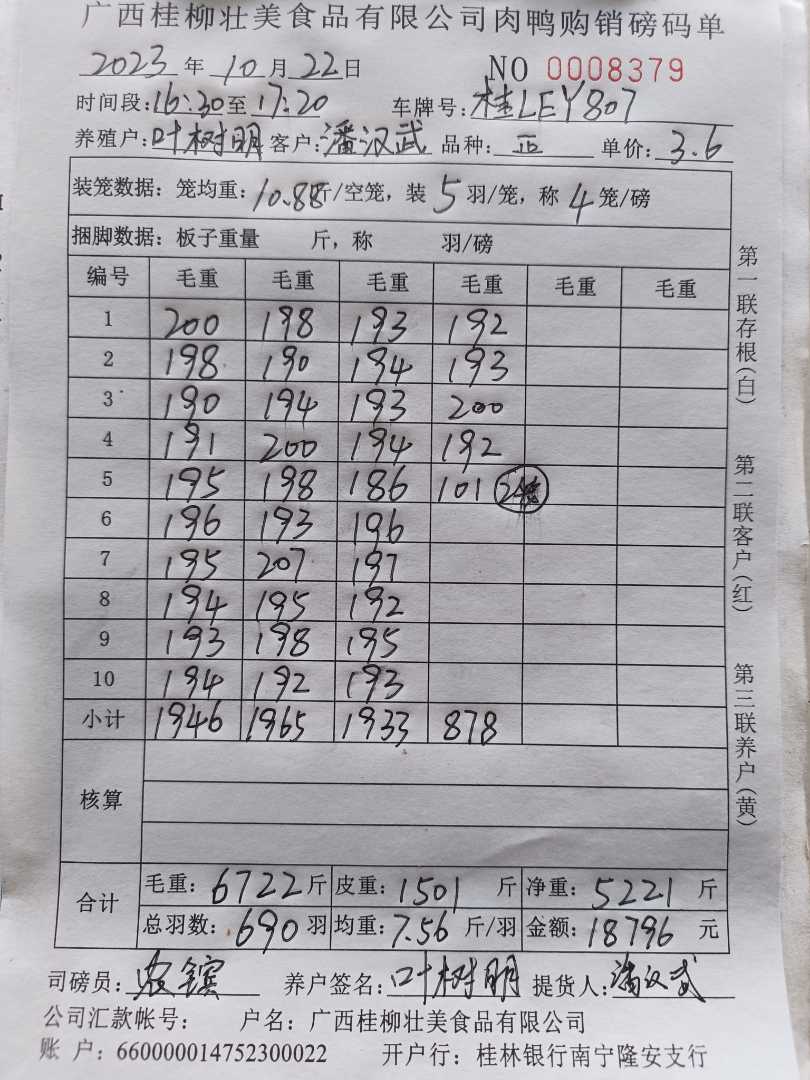 广西桂柳壮美食品有限公司肉鸭购销磅码单
2023 年 10 月 22 日 NO 0008379
时间段:16:30 至 17:20 车牌号:桂LEY807
养殖户:叶树明 客户:潘汉武 品种: 单价:3.6
装笼数据:笼均重:10.88斤/空笼,装 5 羽/笼,称 4 笼/磅
捆脚数据:板子重量 斤,称 羽/磅
编号 毛重 毛重 毛重 毛重 毛重 毛重
1 200 198 193 192
2 198 190 194 193
3 190 194 193 200
4 191 200 194 192
5 195 198 186 101
6 196 193 196
7 195 207 197
8 194 195 192
9 193 198 195
10 194 192 193
小计 1946 1965 1933 878
核算
合计 毛重:6722斤 皮重:1501 斤 净重:5221 斤
总羽数:690羽 均重:7.56 斤/羽 金额:18796 元
司磅员: 养户签名:叶树明 提货人:潘汉武
公司汇款帐号: 户名:广西桂柳壮美食品有限公司
账 户:660000014752300022 开户行:桂林银行南宁隆安支行
第一联存根(白)
第二联客户(红)
第三联养户(黄)